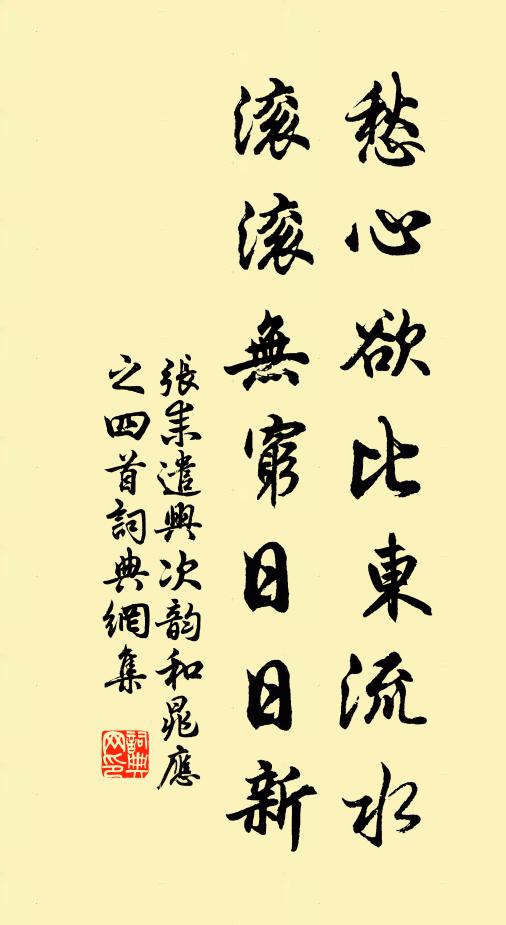 愁心欲比東流水
滾滾無窮日日新
張耒遣興次韵和晁應
之四首詞典網集
詞典
网印